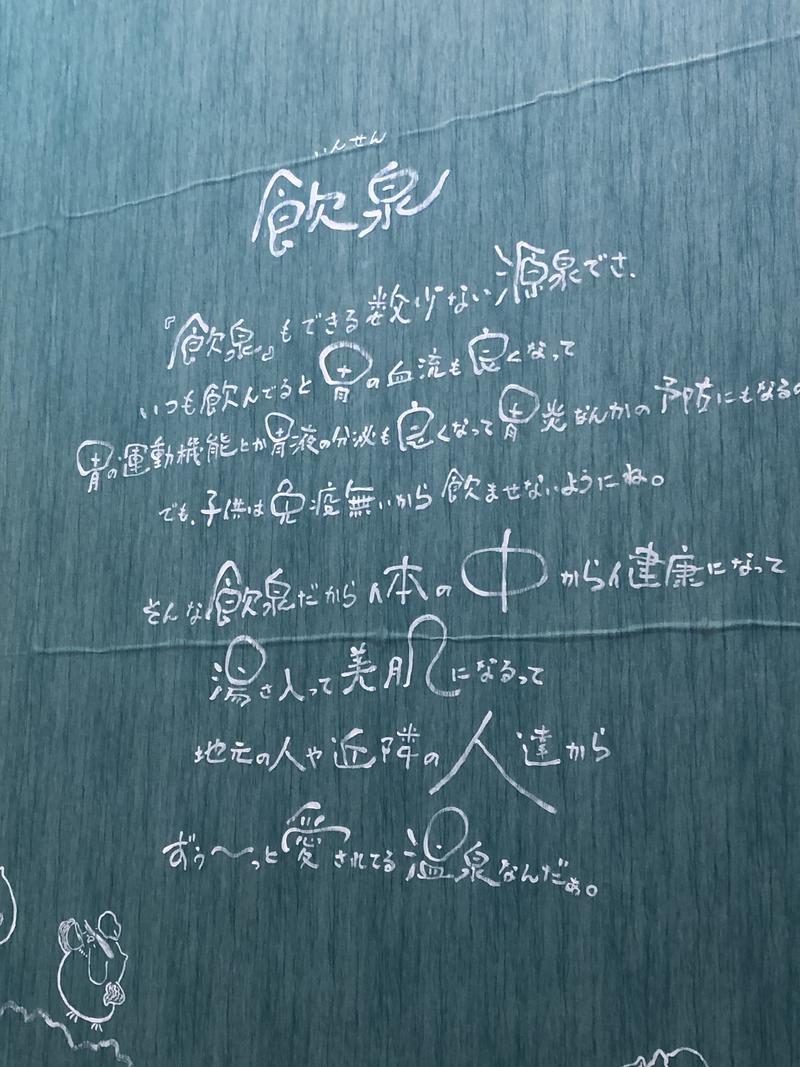 いんせん
飲泉
『飲泉』もできる数少ない源泉でさ、
いつも飲んでると胃の血流も良くなって
胃の運動機能とか胃液の分泌も良くなって胃炎なんかの予防にもなるの
でも、子供は免疫無いから飲ませないようにね。
そんな飲泉だから体の中から健康になって
湯さ入って美肌になるって
地元の人や近隣の人達から
ずぅ〜っと愛されてる温泉なんだぁ。